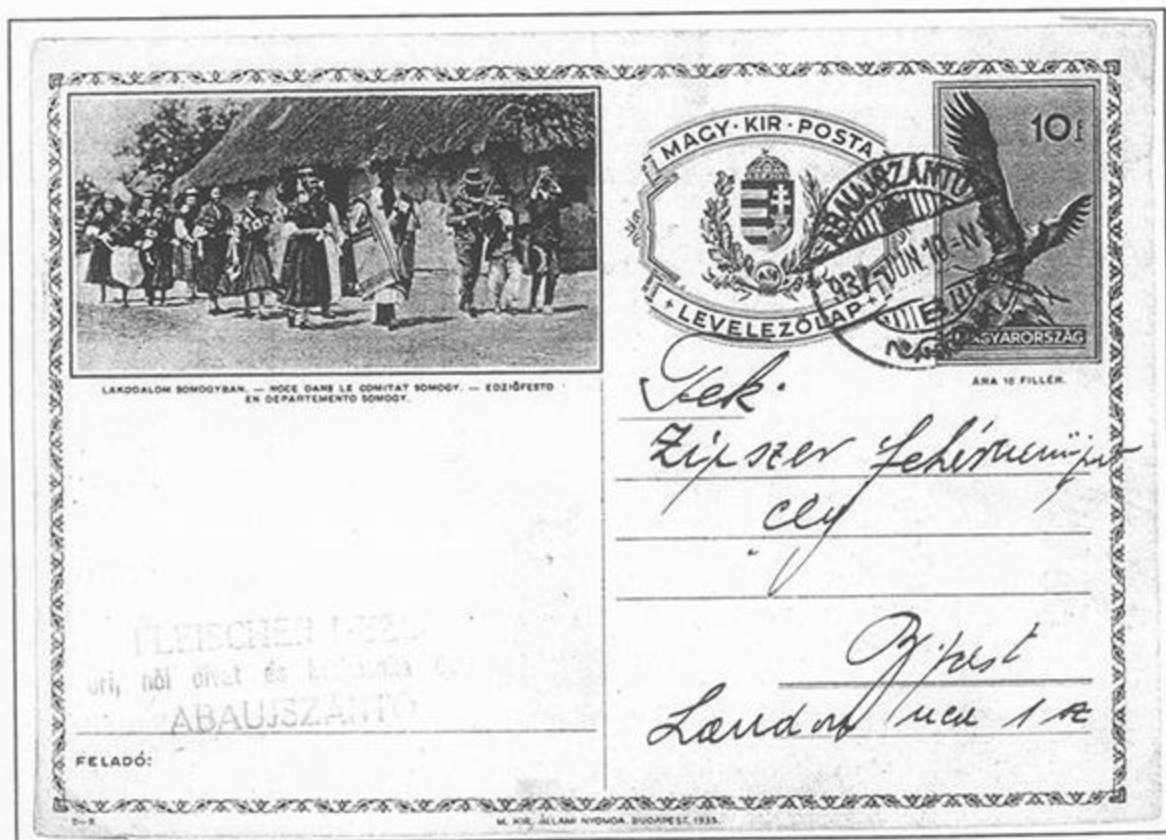 LAKODALOM SOMOGYBAN. — NOCE DANS LE COMITAT SOMOGY. — EDZIĜFESTO
EN DEPARTEMENTO SOMOGY.
MAGY·KIR·POSTA
LEVELEZŐLAP
10f
MAGYARORSZÁG
ÁRA 10 FILLÉR.
ABAUJSZÁNTÓ
937 JUN. 10
Tek.
Zipszer
cég
Bpest
ucca 1 sz
FLEISCHER
uri, női divat és
ABAUJSZÁNTÓ
FELADÓ:
M. KIR. ÁLLAMI NYOMDA. BUDAPEST, 1933.